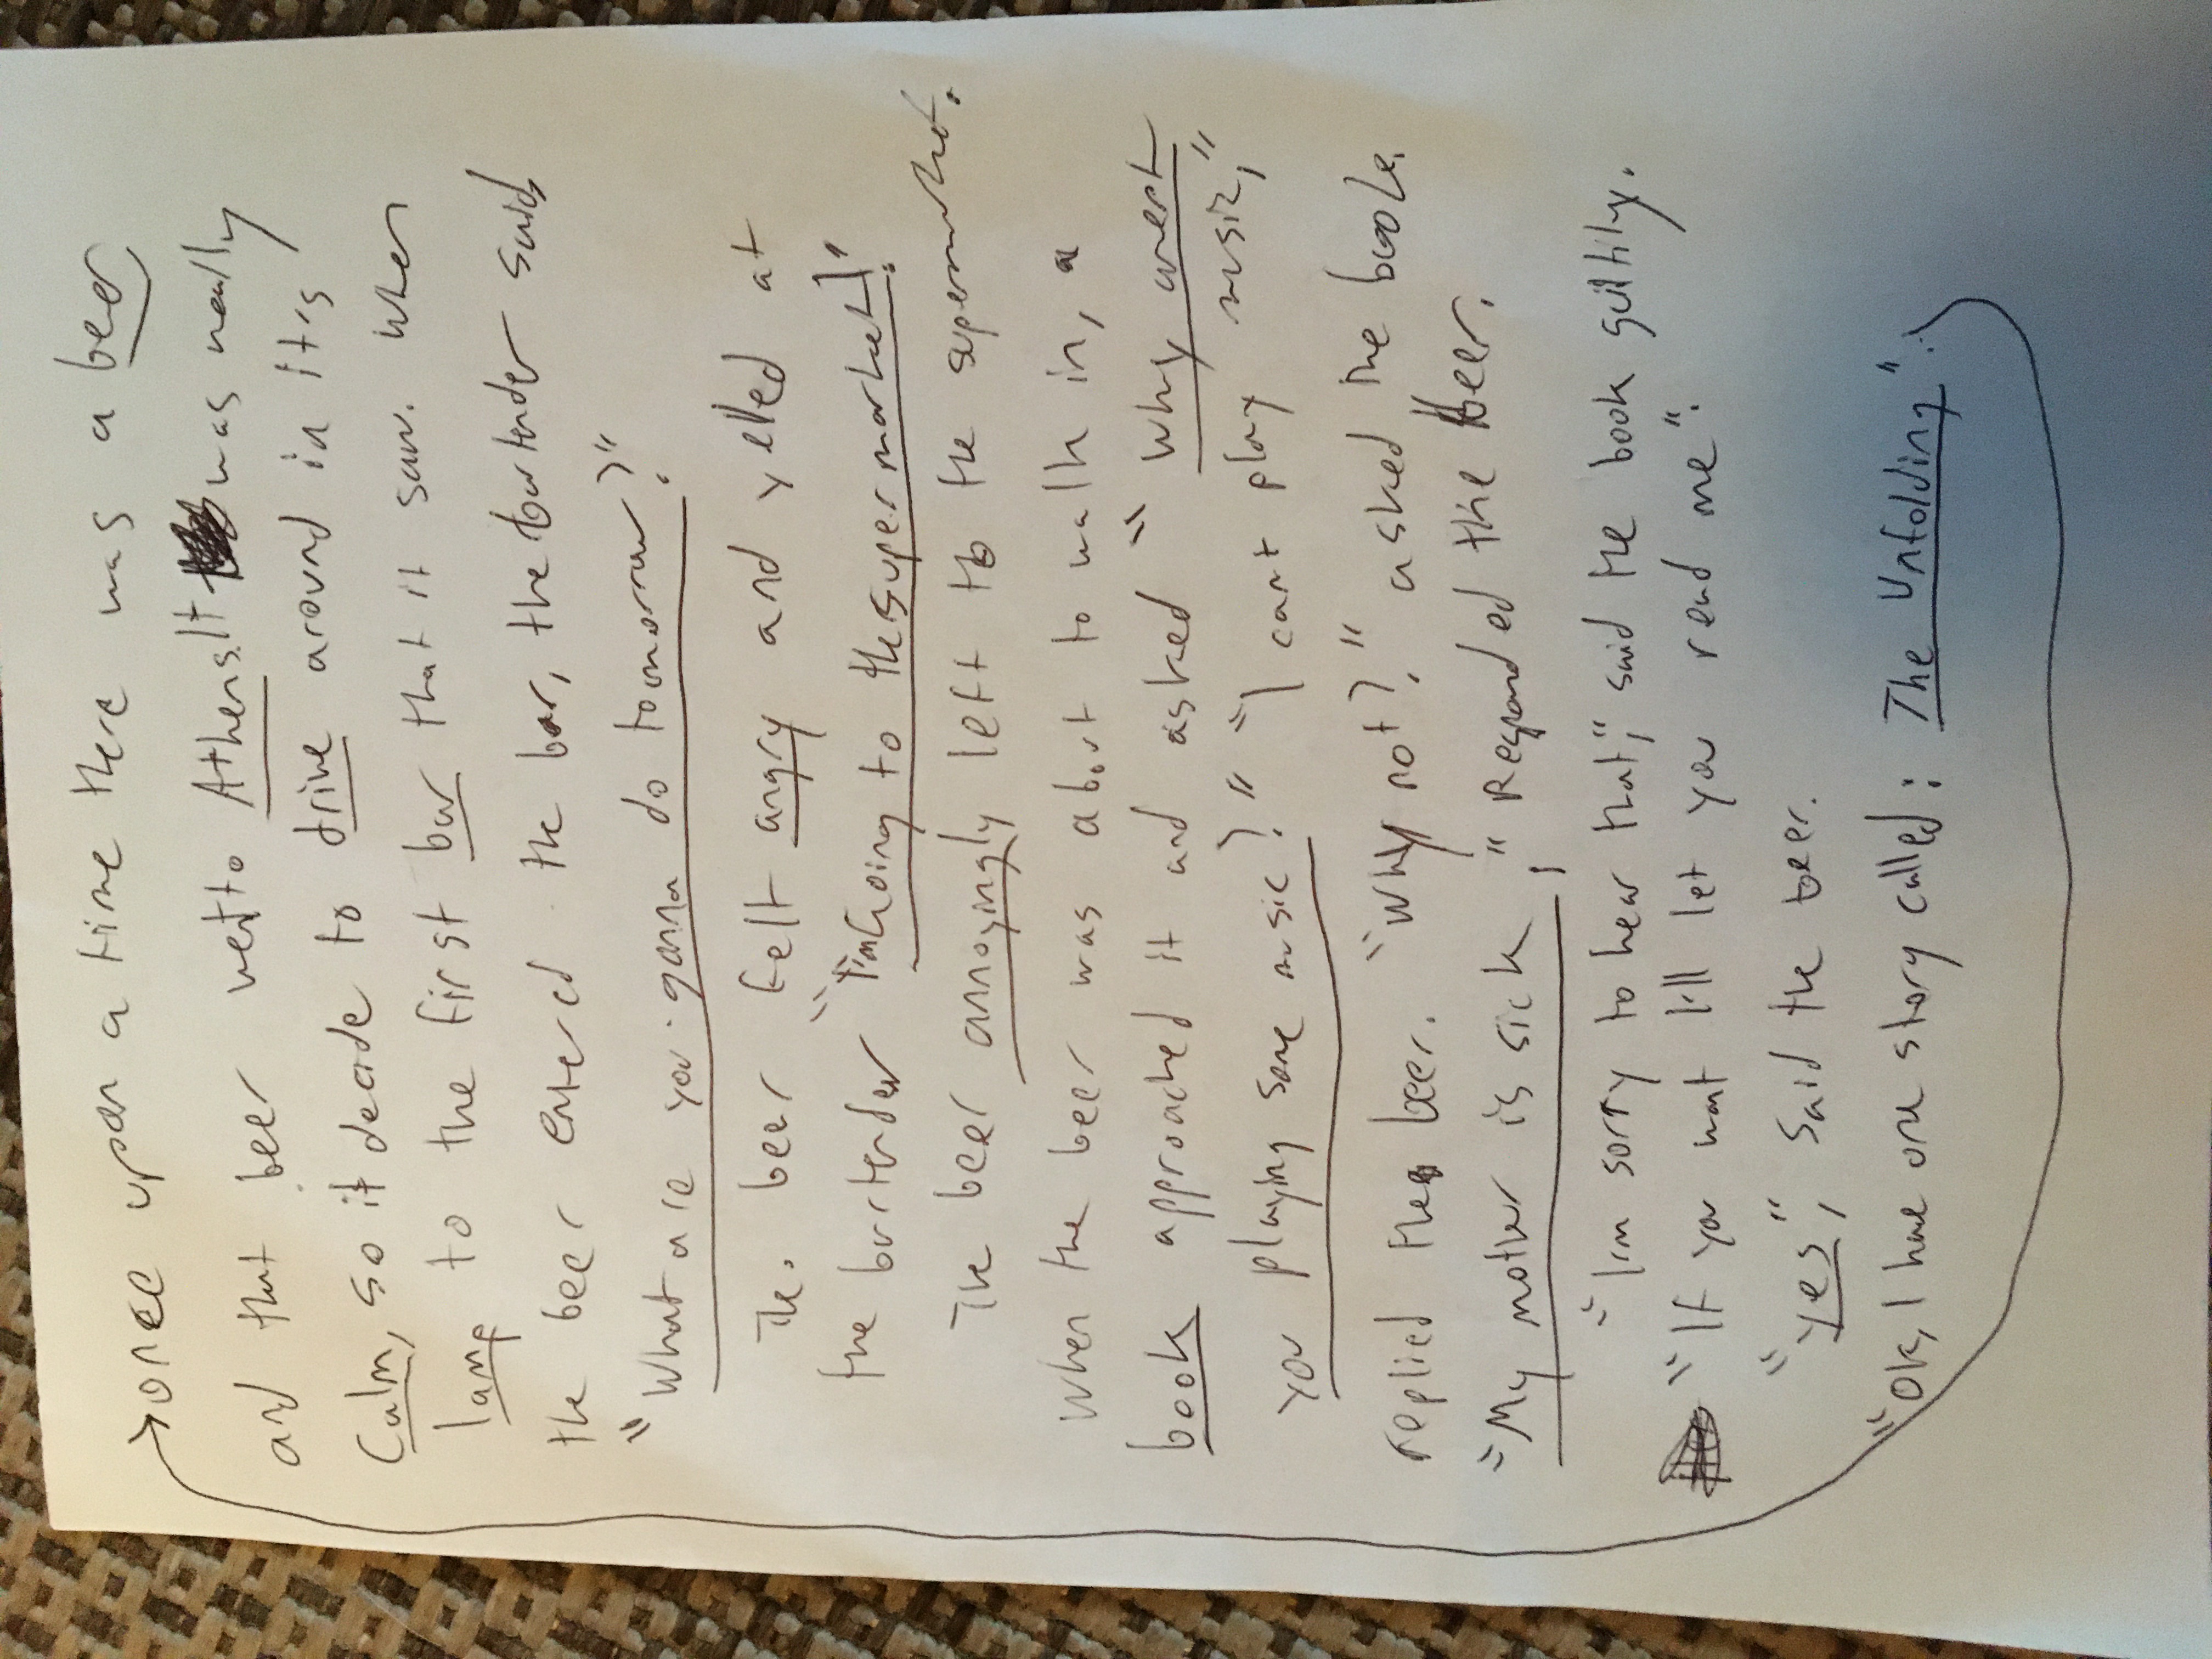 once upon a time there was a beer,
and that beer went to Athens. It was really
Calm, so it decide to drive around in it's
lamp to the first bar that it saw. When
the beer entered the bar, the bartender said,
"What are you gonna do tomorrow?"
The beer felt angry and yelled at
the bartender "I'm Going to the supermarket!"
The beer annoyingly left to the supermarket.
When the beer was about to walk in, a
book approached it and asked "Why arent
you playing some music?" "I can't play music,"
replied the beer. "Why not?" asked the book.
"My mother is sick," Responded the beer.
"I'm sorry to hear that," said the book guiltily.
"If you want I'll let you read me".
"yes", said the beer.
"Ok, I have one story called: The Unfolding".